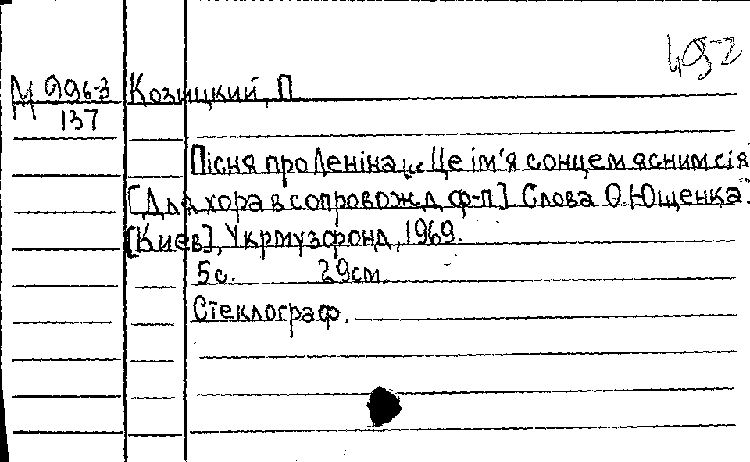 4952
М 996-3
137
Козицкий, П
Пісня про Леніна „Це ім'я сонцем ясним сія"
[Для хора в сопровожд ф-п] Слова О. Ющенка.
[Киев], Укрмузфонд, 1969.
5 с. 29 см.
Стеклограф.